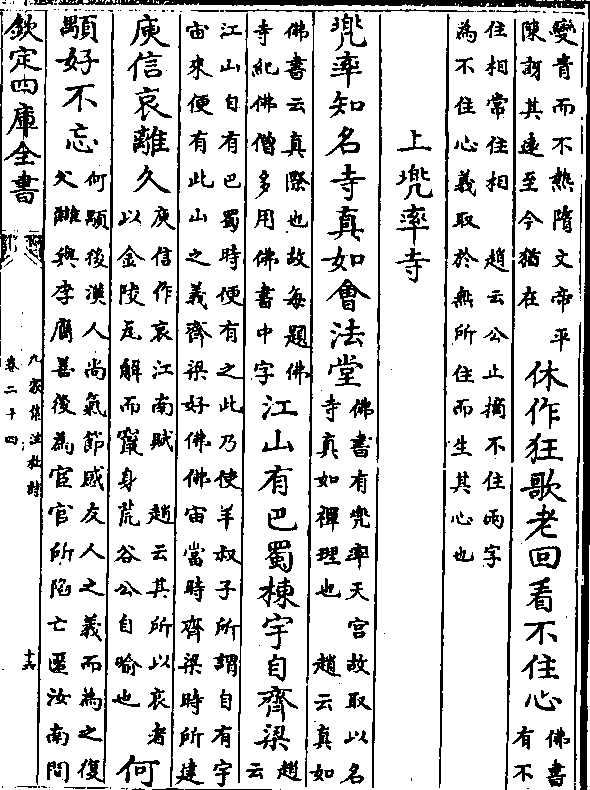 變青而不熱隋文帝平
陳訝其速至今猶在
休作狂歌老回看不住心
佛書
有不
住相常住相　趙云公止摘不住兩字
為不住心義取於無所住而生其心也
上兜率寺
兜率知名寺真如會法堂
佛書有兜率天宮故取以名
寺真如禪理也　趙云真如
佛書云真際也故每題佛
寺紀佛僧多用佛書中字
江山有巴蜀棟宇自齊梁
趙
云
江山自有巴蜀時便有之此乃使羊叔子所謂自有宇
宙來便有此山之義齊梁好佛佛宙當時齊梁時所建
庾信哀離久
庾信作哀江南賦　趙云其所以哀者
以金陵瓦解而竄身荒谷公自喻也
何
顒好不忘
何顒後漢人尚氣節感友人之義而為之復
仇雖與李膺善後為宦官所陷亡匿汝南間
欽定四庫全書
九家集注杜詩
卷二十四
十六